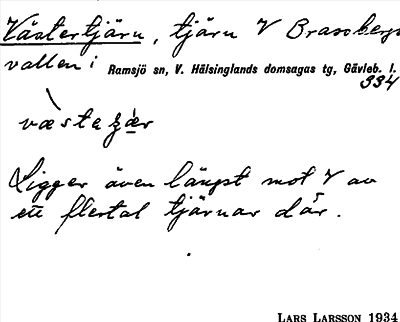 Västertjärn, tjärn V Brassbergs
vallen i Ramsjö sn, V. Hälsinglands domsagas tg, Gävleb. l.
334
Ligger även längst mot V av
ett flertal tjärnar där.
LARS LARSSON 1934